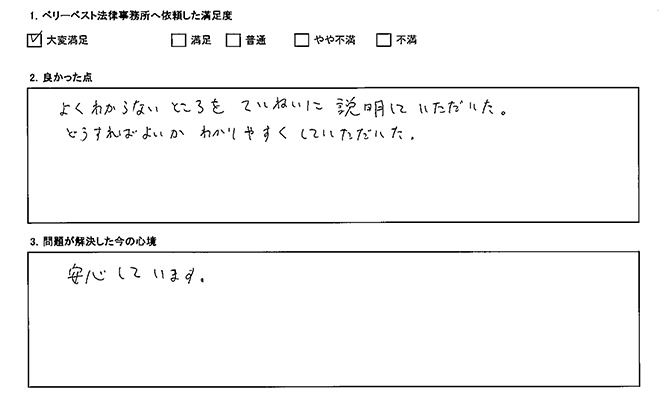 1. ベリーベスト法律事務所へ依頼した満足度
☑ 大変満足 □ 満足 □ 普通 □ やや不満 □ 不満
2. 良かった点
よくわからないところを ていねいに 説明して いただいた。
どうすればよいか わかりやすく していただいた。
3. 問題が解決した今の心境
安心しています。